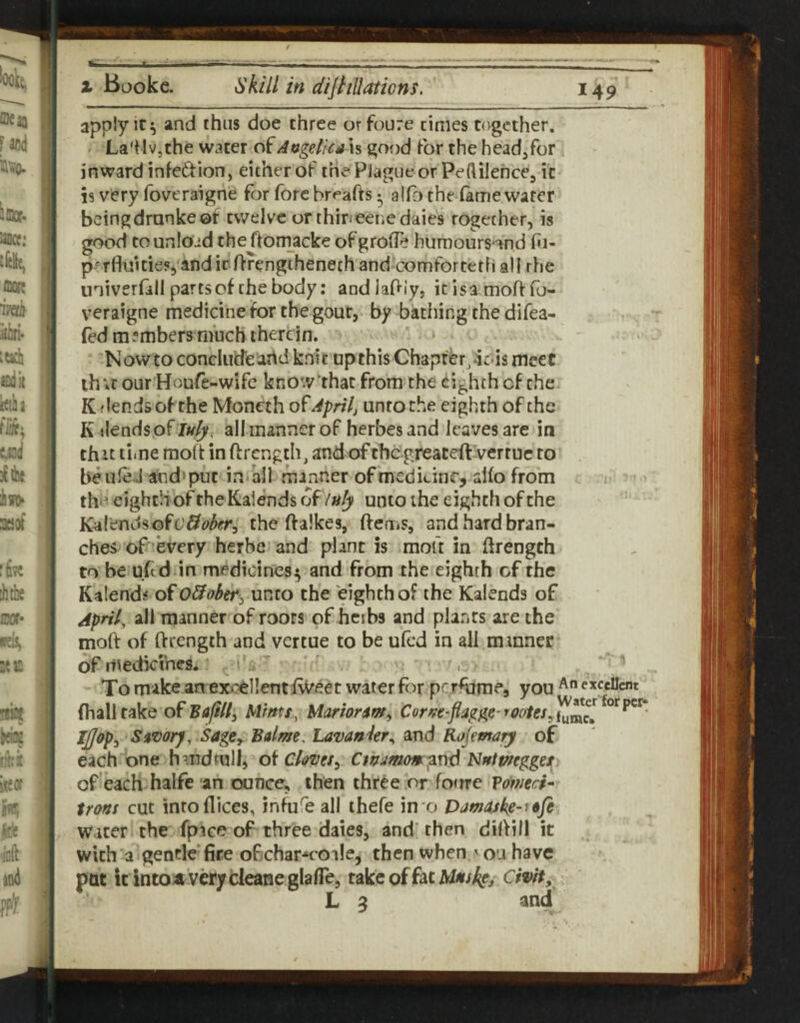 2 Booke. Skill in diſtillations. 149
apply it; and thus doe three or foure times together.
Laſtly, the water of Angelica is good for the head, for
inward infection, either of the Plague or Peſtilence, it
is very ſoveraigne for ſore breaſts; alſo the ſame water
being drunke of twelve or thirteene daies together, is
good to unload the ſtomacke of groſſe humours and ſu-
perfluities, and it ſtrengtheneth and comforteth all the
univerſall parts of the body: and laſtly, it is a moſt ſo-
veraigne medicine for the gout, by bathing the diſea-
ſed members much therein.
Now to conclude and knit up this Chapter, it is meet
that our Houſe-wife know that from the eighth of the
Kalends of the Moneth of April, unto the eighth of the
Kalends of Iuly, all manner of herbes and leaves are in
that time moſt in ſtrength, and of the greateſt vertue to
be uſed and put in all manner of medicine, alſo from
the eighth of the Kalends of Iuly unto the eighth of the
Kalends of October, the ſtalkes, ſtems, and hard bran-
ches of every herbe and plant is moſt in ſtrength
to be uſed in medicines; and from the eighth of the
Kalends of October, unto the eighth of the Kalends of
April, all manner of roots of herbs and plants are the
moſt of ſtrength and vertue to be uſed in all manner
of medicines.
To make an excellent ſweet water for perfume, you
ſhall take of Baſill, Mints, Marioram, Corne-flagge-rootes,
Iſſop, Savory, Sage, Balme, Lavander, and Roſemary of
each one handfull, of Cloves, Cinamon and Nutmegges
of each halfe an ounce, then three or foure Pomeci-
trons cut into ſlices, infuſe all theſe in o Damaske-roſe
water the ſpice of three daies, and then diſtill it
with a gentle fire of char-coale, then when you have
put it into a very cleane glaſſe, take of fat Muske, Civit,
L 3 and
An excellent
Water for per-
fume.
looke,
and